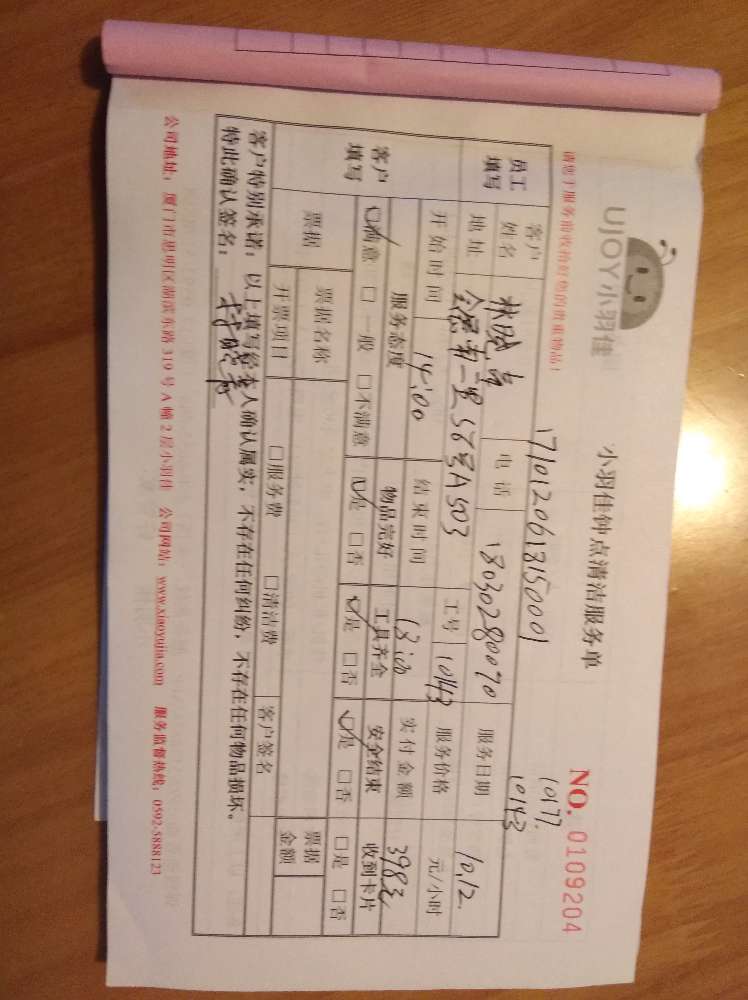 UJOY小羽佳
小羽佳钟点清洁服务单
NO. 0109204
请您于服务前收拾好您的贵重物品!
1710120618150001
10177.
10143
员工填写
客户姓名
林晓
电话
18030280070
服务日期
10.12.
地址
56号A503
工号
10143
服务价格
元/小时
开始时间
14:00
结束时间
18:00
实付金额
398元
客户填写
服务态度 物品完好 工具齐全 安全结束 收到卡片
☑满意 □一般 □不满意 ☑是 □否 ☑是 □否 ☑是 □否 □是 □否
票据
票据名称
票据金额
开票项目
□服务费 □清洁费
客户签名
客户特别承诺:以上填写经本人确认属实,不存在任何纠纷,不存在任何物品损坏。
特此确认签名:
公司地址:厦门市思明区湖滨东路 319 号 A 幢 2 层小羽佳 公司网站:www.xiaoyujia.com 服务监督热线:0592-5888123